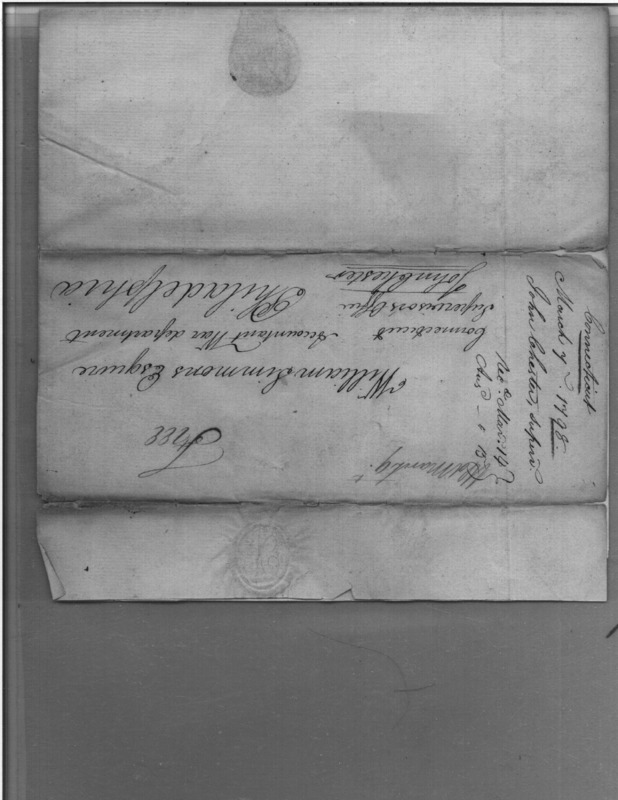 Free
William Simmons Esquire
Accountant War department
Philadelphia
Connecticut
Supervisors Offi
John Chester
Connecticut
March 7 1798
John Chester, Superv
Rec.d Mar: 14
Ans.d